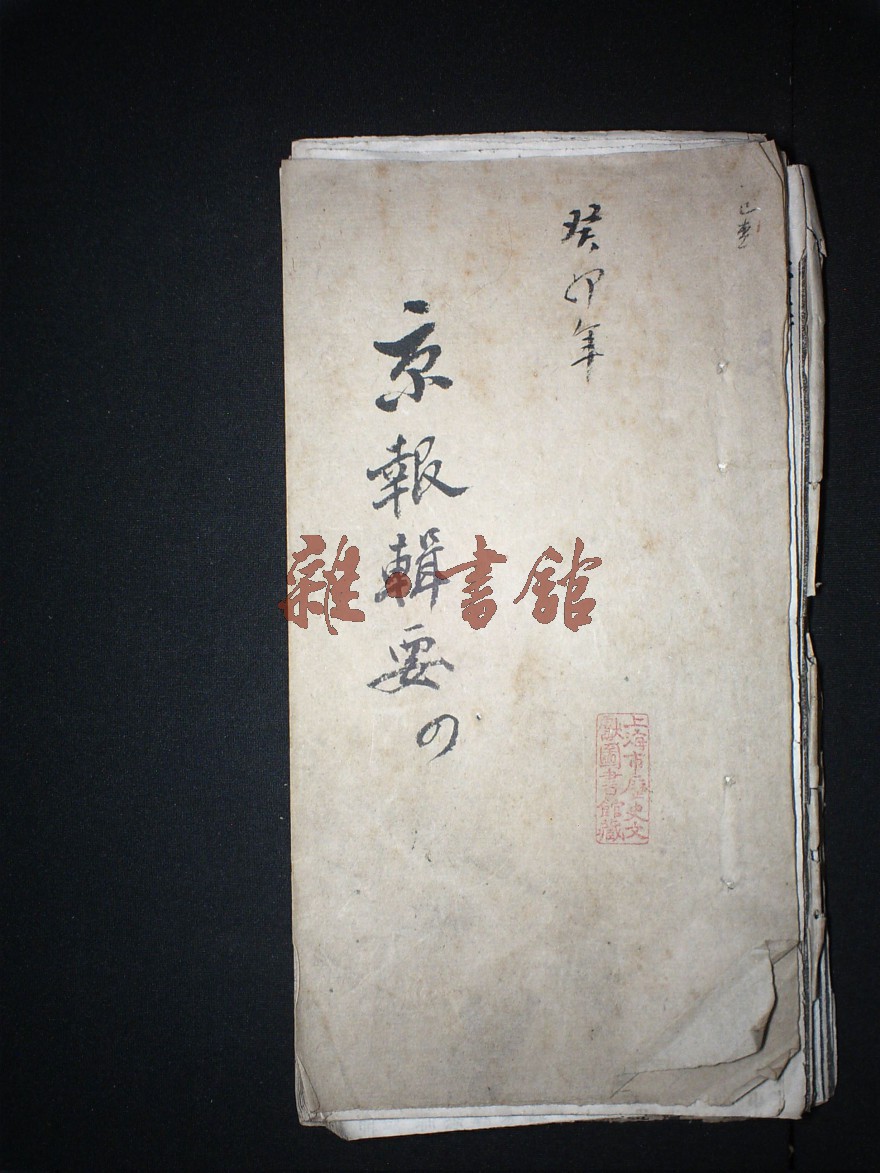 癸卯年
京報輯要四
上海市歷史文
獻圖書館藏
雜·書館